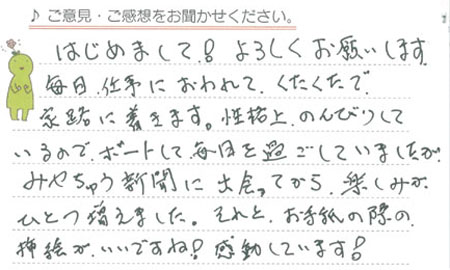 ♪ ご意見・ご感想をお聞かせください。
はじめまして！よろしくお願いします
毎日、仕事におわれて、くたくたで
家路に着きます。性格上、のんびりして
いるので、ボートして、毎日を過ごしていましたが
みやちゅう新聞に出会ってから、楽しみが
ひとつ増えました。それと、お手紙の際の、
挿絵が、いいですね！感動しています！